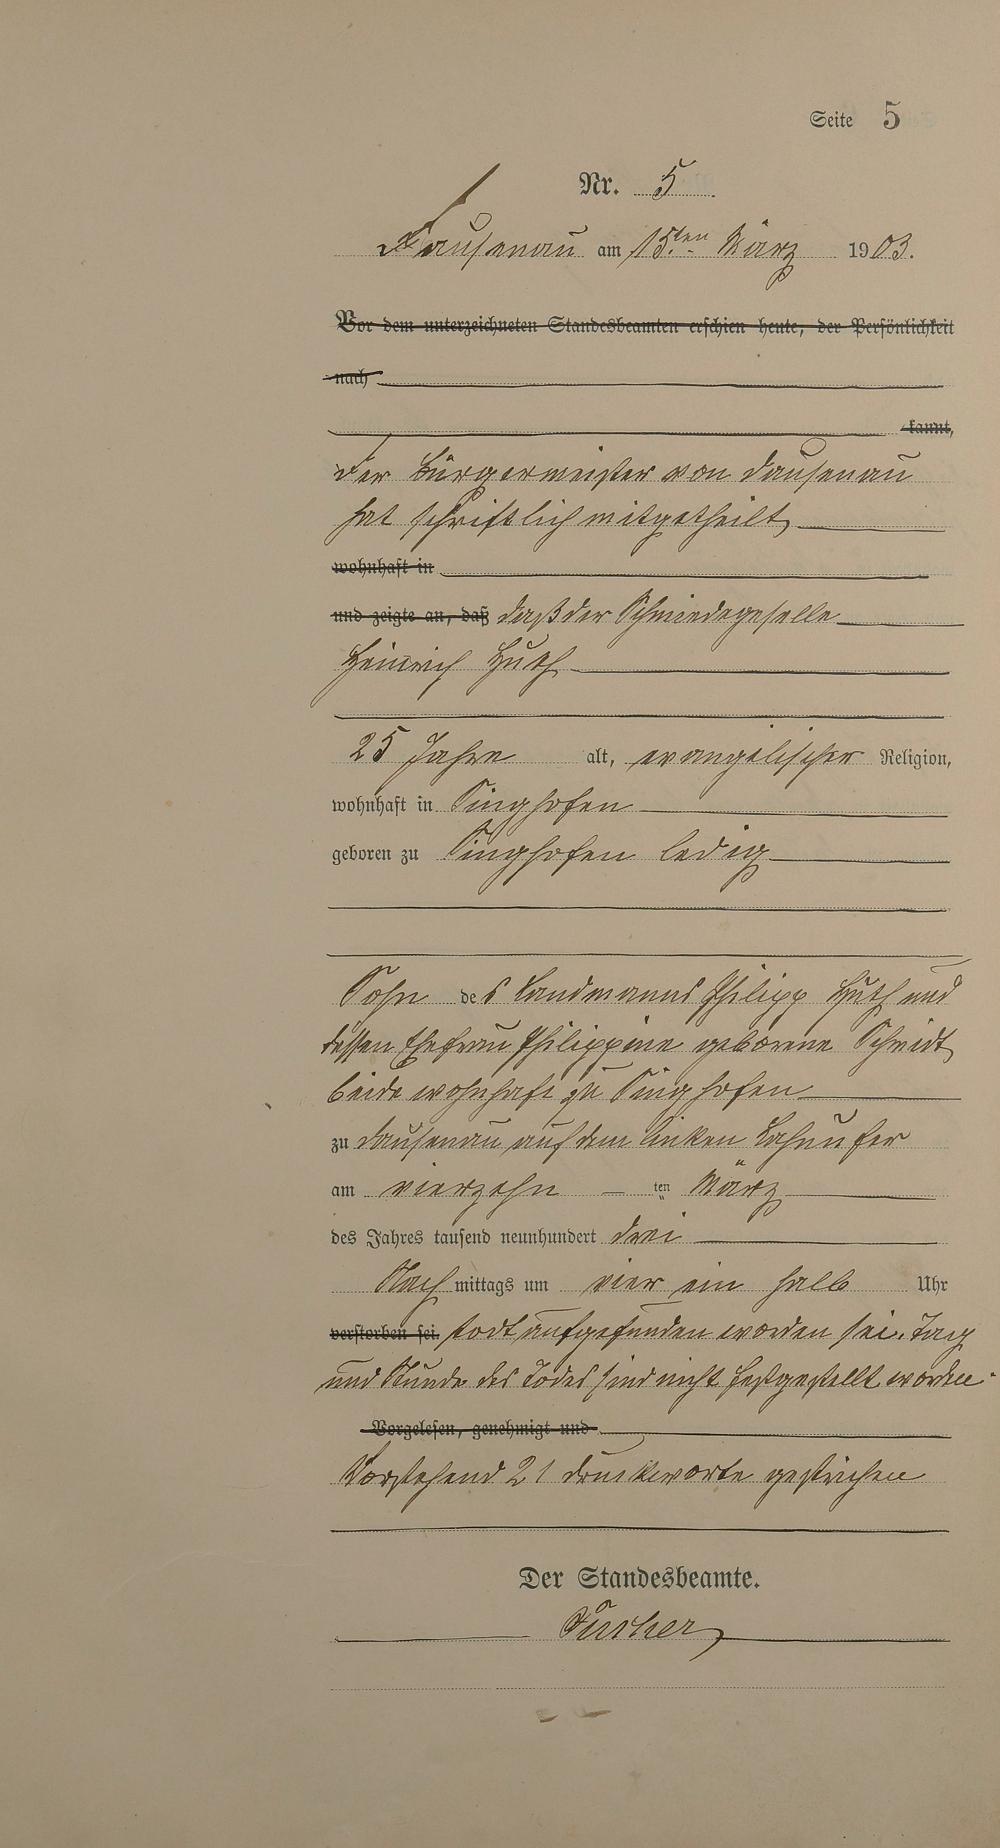 Seite 5
Nr. 5
Dausenau am 15ten März 1903.
Vor dem unterzeichneten Standesbeamten erschien heute, der Persönlichkeit
nach
kannt,
Der Bürgermeister von Dausenau
hat schriftlich mitgetheilt,
wohnhaft in
und zeigte an, daß daß der Schmiedegeselle
Heinrich Huth
25 Jahre alt, evangelischer Religion,
wohnhaft in Singhofen
geboren zu Singhofen ledig
Sohn des Landmanns Philipp Huth und
dessen Ehefrau Philippine geborene Schmidt
beide wohnhaft zu Singhofen
zu Dausenau auf dem linken Lahnufer
am vierzehn ten März
des Jahres tausend neunhundert drei
Nach mittags um vier ein halb Uhr
verstorben sei. todt aufgefunden worden sei. Tag
und Stunde des Todes sind nicht festgestellt worden.
Vorgelesen, genehmigt und
Vorstehend 21 Druckworte gestrichen
Der Standesbeamte.